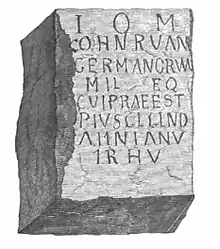 I O M
COH N RVAN
GERMANORVM
MIL EQ
CVI PRAEEST
PIVS CL LVND
AMNIANV
IRHV